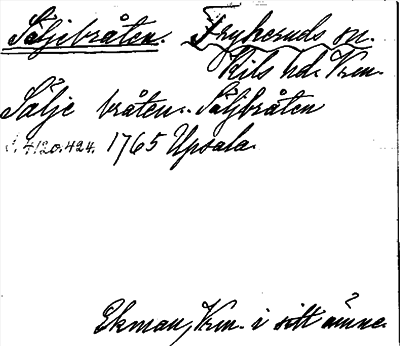 Säljebråten. Frykeruds sn.
Kils hd. Vrm.
Sälje bråten. Säljbråten
S. 4120.424. 1765 Upsala.
Ekman, Vrm. i sitt ämne.